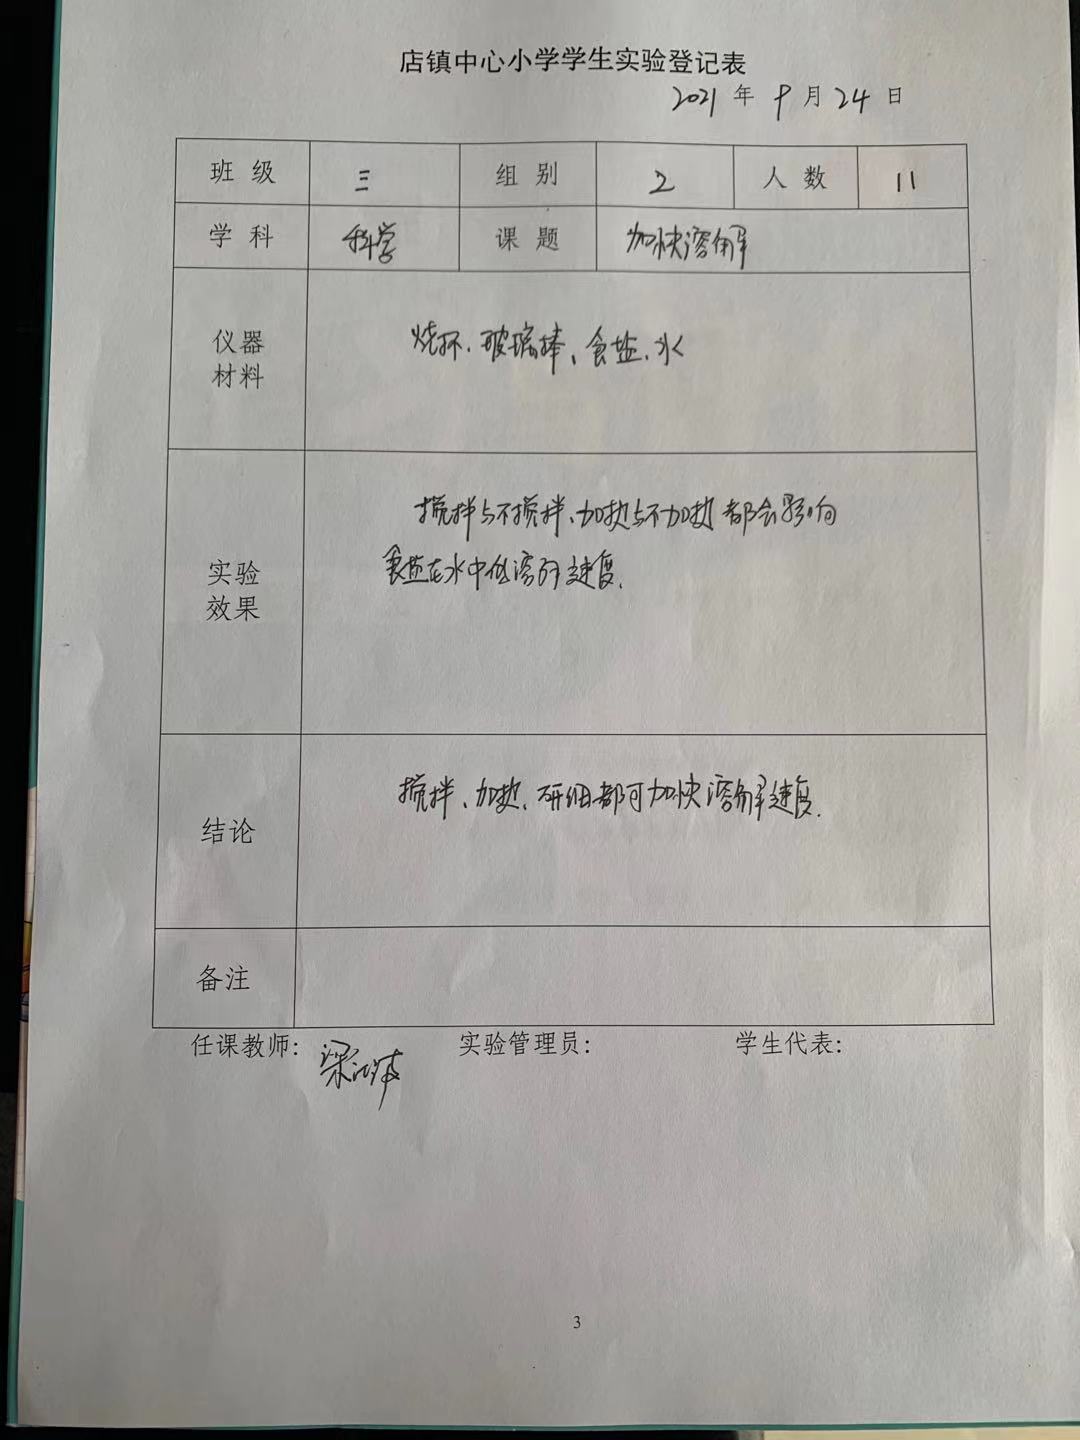 店镇中心小学学生实验登记表
2021 年 9 月 24 日
班 级 三 组 别 2 人 数 11
学 科 科学 课 题 加快溶解
仪器
材料
烧杯、玻璃棒、食盐、水
搅拌与不搅拌、加热与不加热都会影响
食盐在水中的溶解速度.
实验
效果
搅拌、加热、研细都可加快溶解速度.
结论
备注
任课教师: 梁 实验管理员: 学生代表:
3